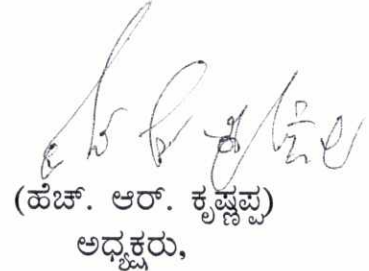 (ಹೆಚ್. ಆರ್. ಕೃಷ್ಣಪ್ಪ)
ಅಧ್ಯಕ್ಷರು,